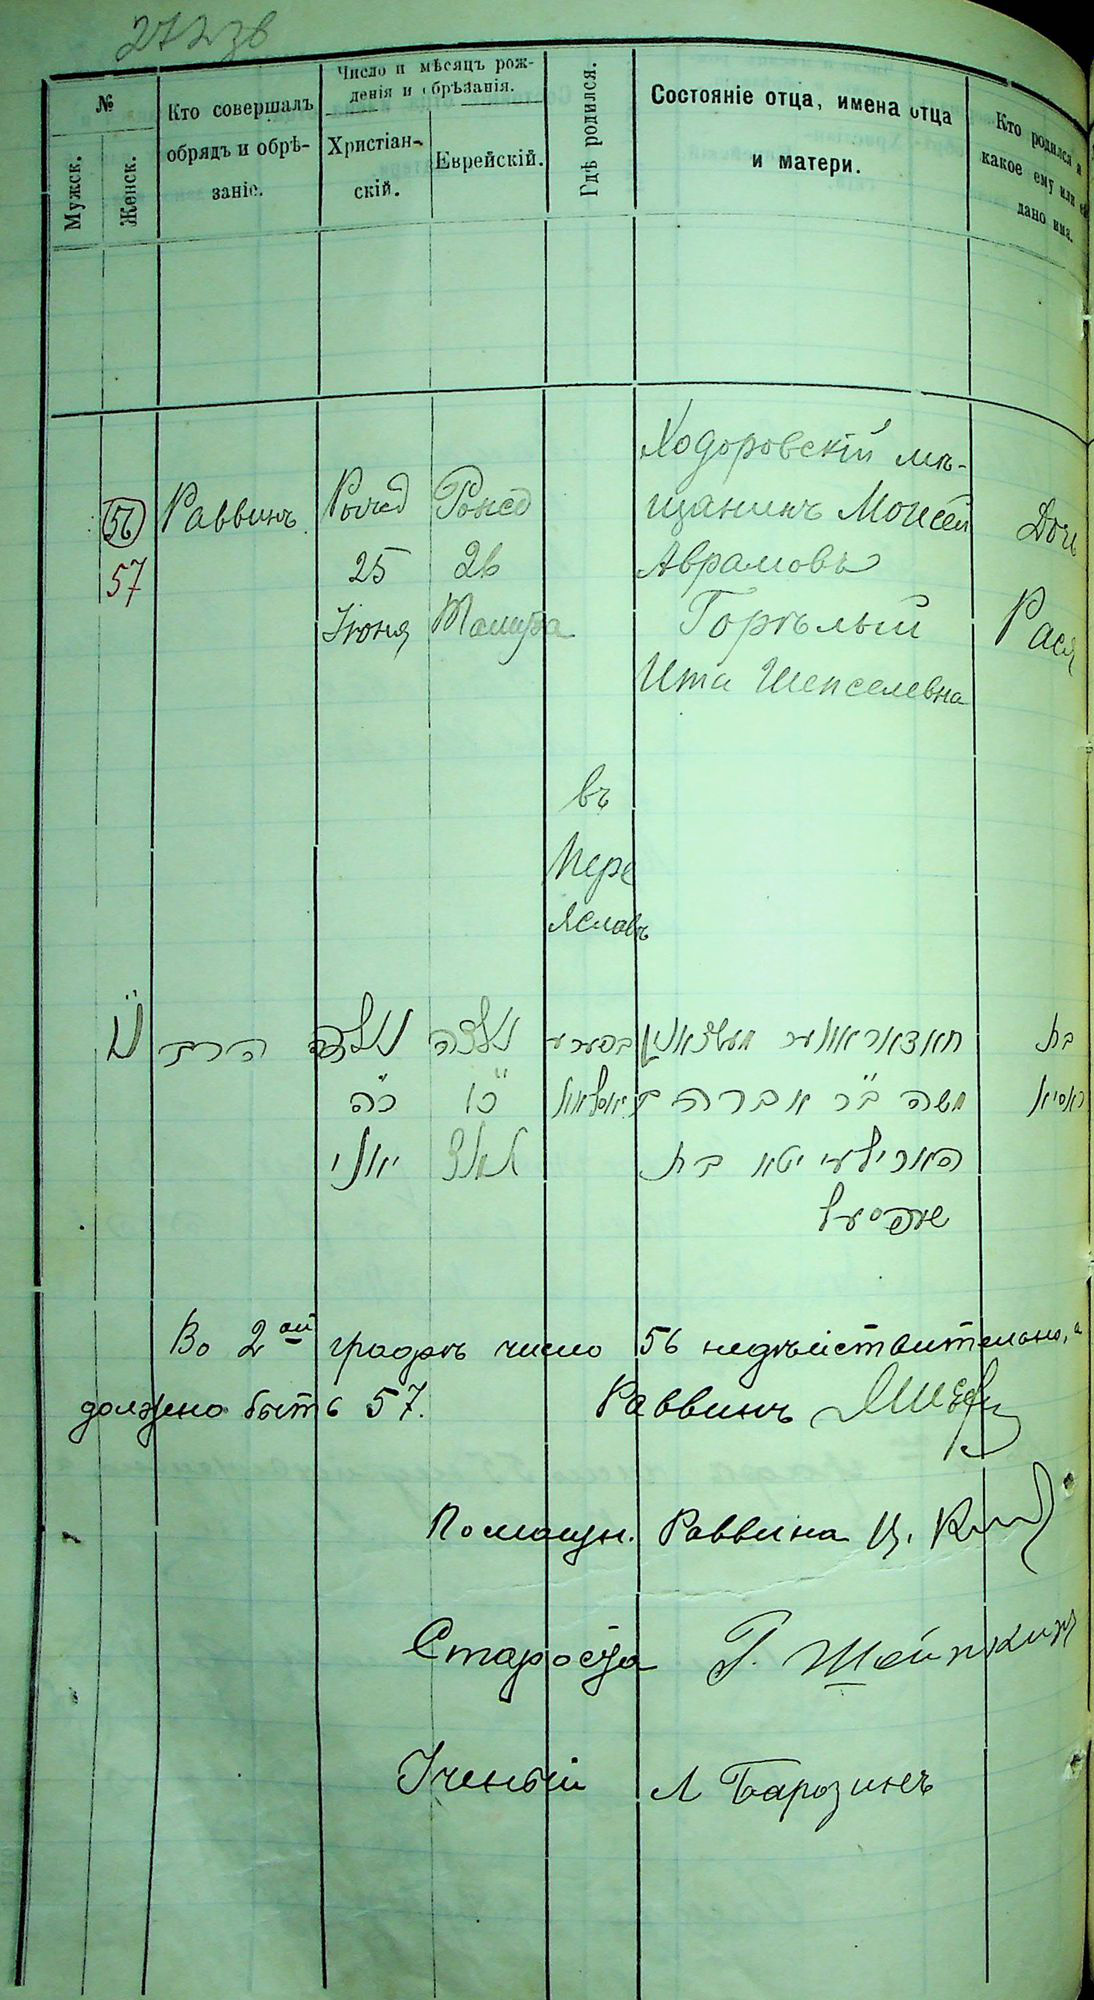 272 зв
№
Мужск.
Женск.
Кто совершалъ
обрядъ и обрѣ-
заніе.
Число и мѣсяцъ рож-
денія и обрѣзанія.
Христіан-
скій.
Еврейскій.
Гдѣ родился.
Состояніе отца, имена отца
и матери.
Кто родился и
какое ему или ей
дано имя.
56
57
Раввинъ
Рожд
25
Іюня
Рожд
26
Тамуза
въ
Пере
яславѣ
Ходоровскій мѣ-
щанинъ Моисей
Аврамовъ
Горѣлый
Ита Шепселевна
Дочь
Рася
הרב
נולדה
כ"ה
יוני
נולדה
כ"ו
תמוז
משה ב"ר אברהם
יטא בת
בת
ראסיא
Во 2ой графѣ число 56 недѣйствительно, а
должно быть 57. Раввинъ
Помощн. Раввина Ц.
Староста Г.
Ученый Л Барозинъ